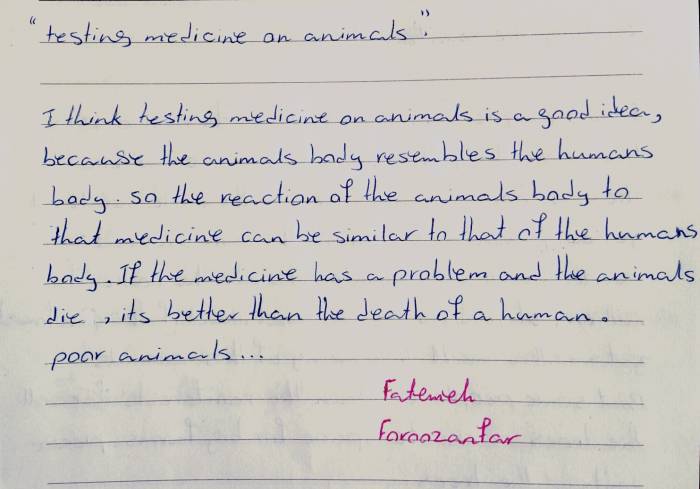 "testing medicine on animals".
I think testing medicine on animals is a good idea,
because the animals body resembles the humans
body. so the reaction of the animals body to
that medicine can be similar to that of the humans
body. If the medicine has a problem and the animals
die, its better than the death of a human.
poor animals...
Fatemeh
Foroozanfar